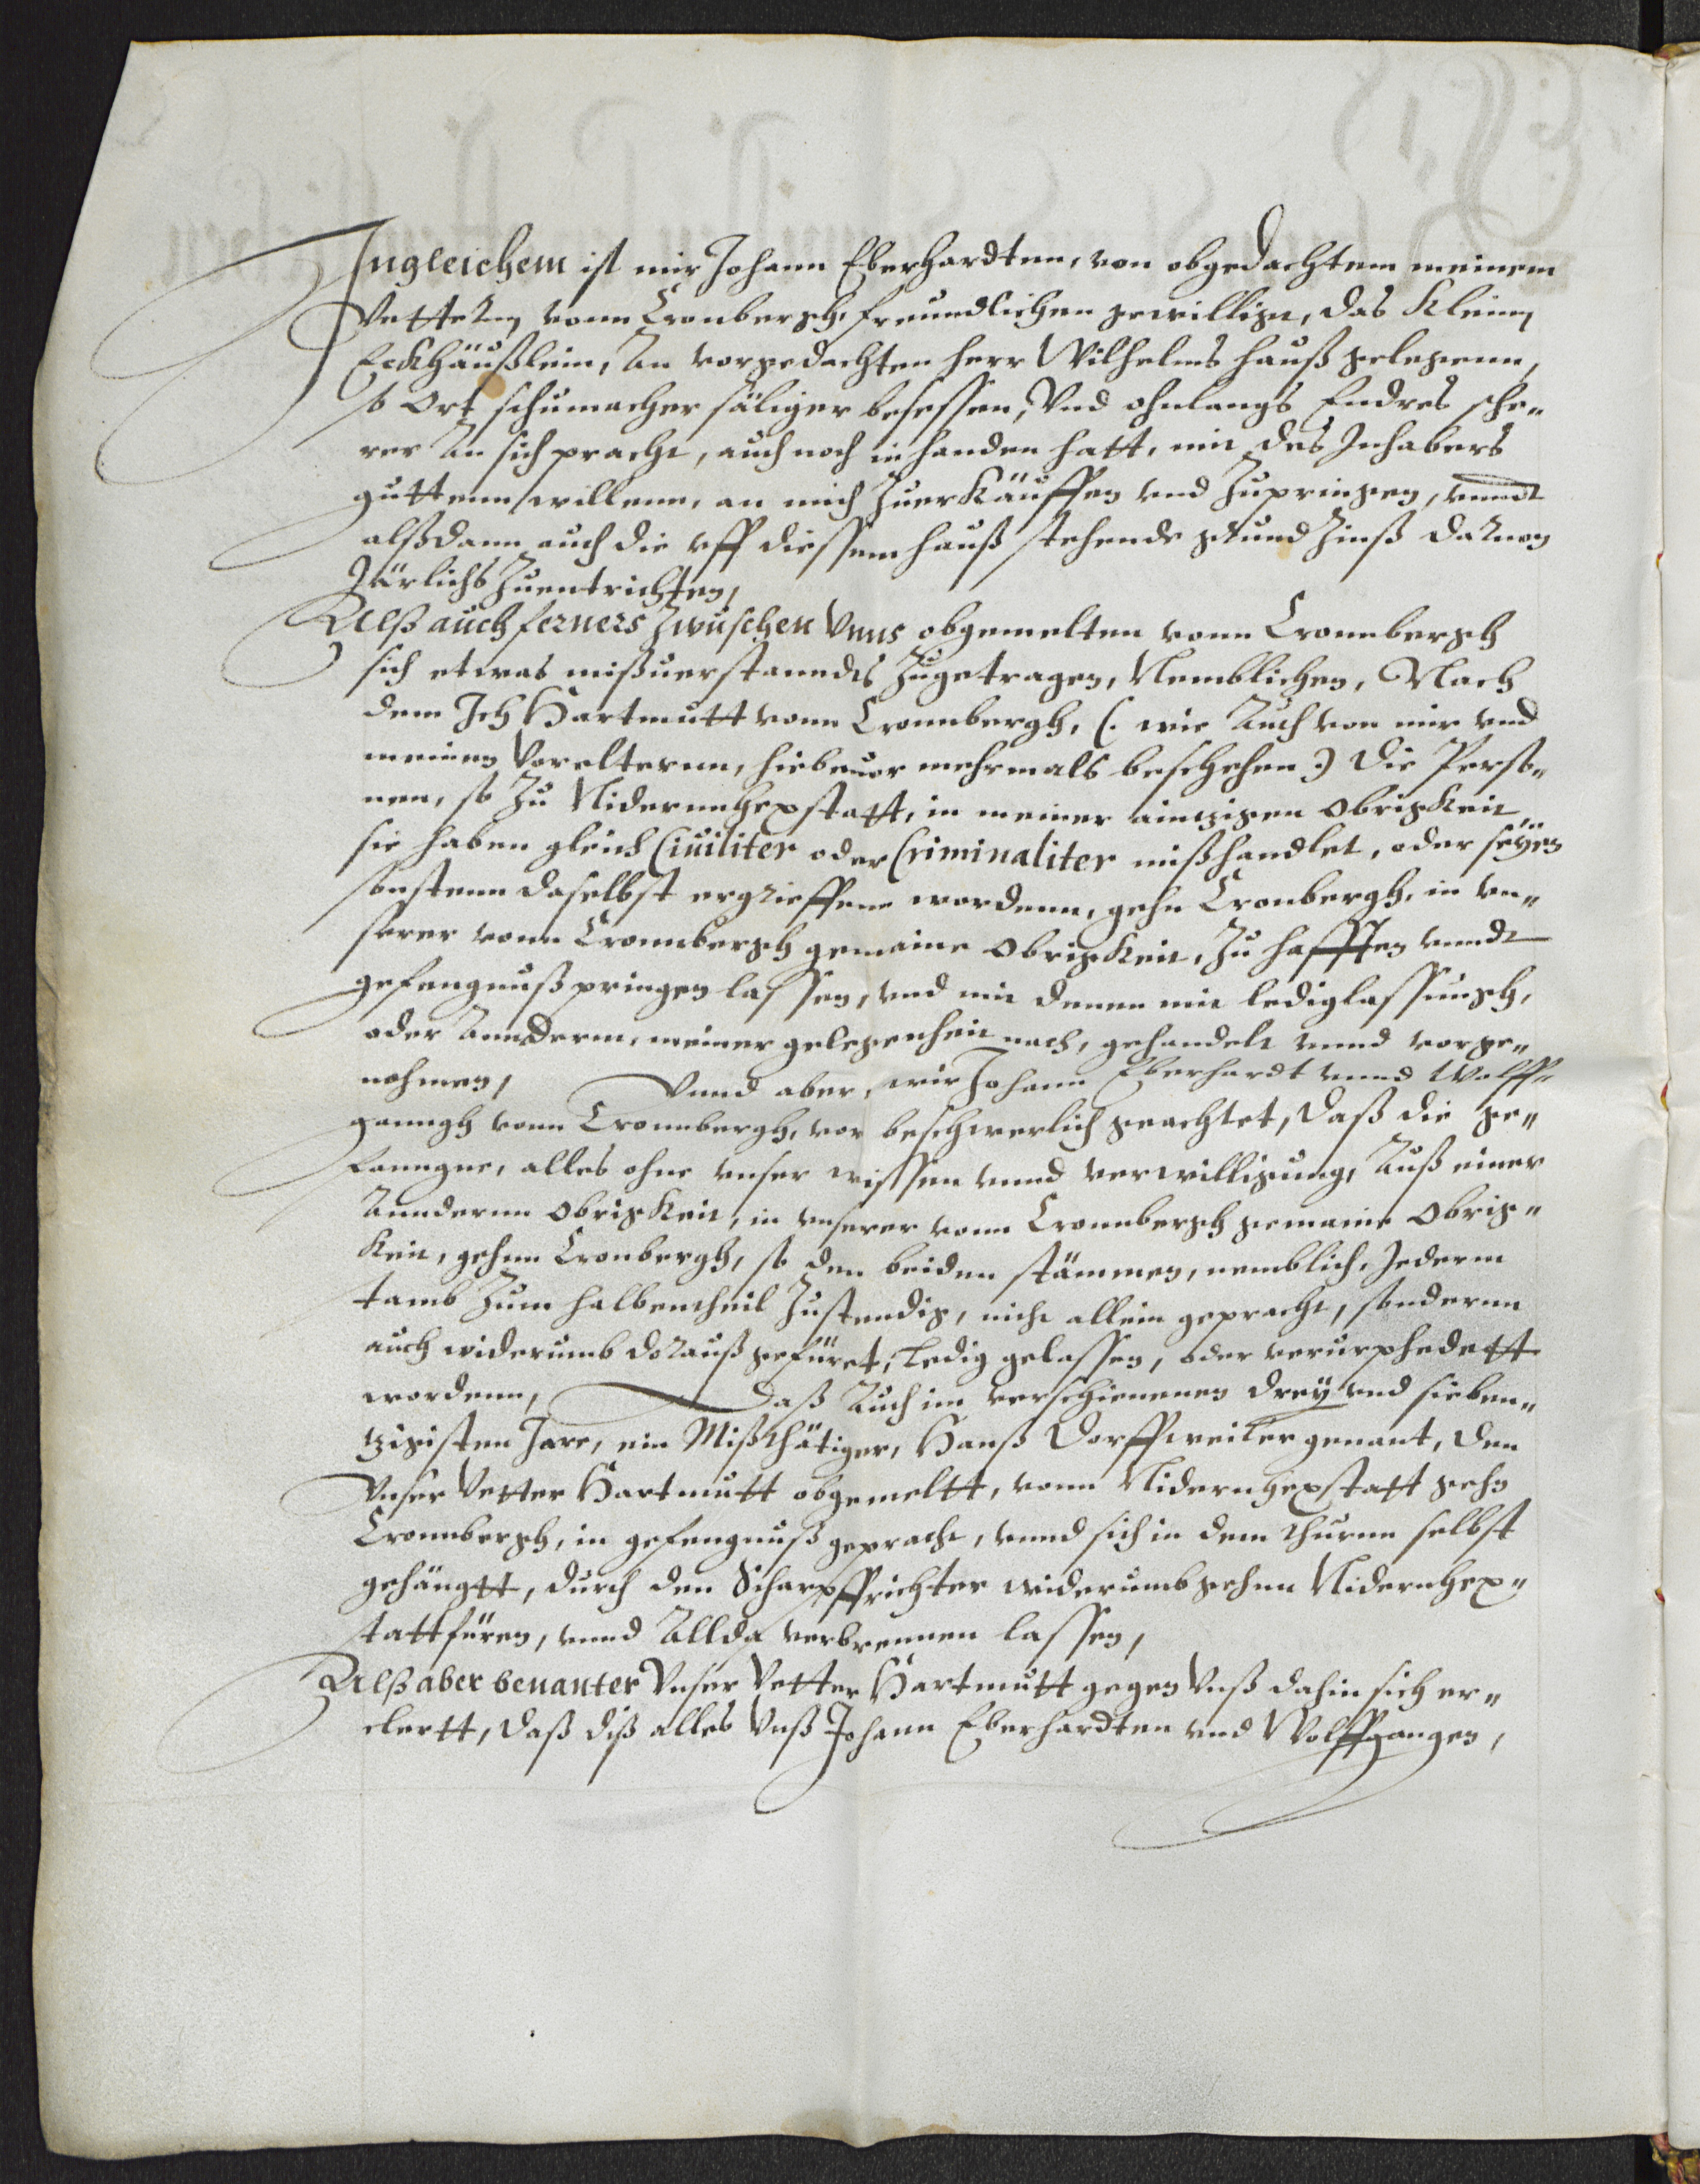 Ingleichem ist mir Johann Eberhardten, von obgedachtem meinem
Vettern vonn Cronbergh, freundlichen gewilligt, das Kleine
Eckhäußlein, An vorgedachten herr Wilhelms hauß gelegenn,
so Ort schumacher säliger besessen, Vnd ohnlangs Endres sche„
rer An sich pracht, auch noch in handen hatt, mit des Inhabers
guttenn willenn, an mich Zuerkäuffen vnd Zupringen, vnndt
alßdann auch die vff diessem hauß stehende grund Zinß darneg
Järlichs Zuentrichten,
Alß auch ferners Zwuschen Vnns obgemelten vonn Cronnbergh
sich etwas mißuerstanndts Zugetragen, Nemblichen, Nach
dem Ich Hartmutt vonn Cronnbergh, (: wie Auch von mir vnd
meinen Vorelternn, hiebeuor mehrmals beschehen :) die Perso„
nen, so Zu Nidernnhexstatt, in meiner aintzigen Obrigkeit,
sie haben gleich Ciuiliter oder Criminaliter mißhandlet, oder seyen
sonstenn daselbst ergrieffenn wordenn, gehn Cronbergh, in vn„
serer vonn Cronnbergh gemaine Obrigkeit, Zu hafften vnndt
gefengnuß pringen lassen, vnd mit denen mit lediglassungh,
oder Annderm, meiner gelegenheit nach, gehandelt vnnd vorge„
nohmen, Vnnd aber, wir Johann Eberhardt vnnd Wolff„
ganngh vonn Cronnbergh, vor beschwerlich geachtet, daß die ge„
fanngne, alles ohne vnser wissen vnnd verwilligung, Auß einer
Anndernn Obrigkeit, in vnserer vonn Cronnbergh gemaine Obrig„
keit, gehnn Cronbergh, so den beiden stämmen, nemblich, Jederm
tamb Zum halbentheil Zustendig, nicht allein gepracht, sondernn
auch widerumb darauß gefüret, Ledig gelassen, oder verurphedett
wordenn, Daß Auch im verschienenen drey vnd sieben„
tzigisten Jare, ein Mißthätiger, Hanß Dorffweiler genant, den
Vnser Vetter Hartmutt obgemeltt, vonn Nidernhexstatt gehn
Cronnbergh, in gefengnuß gepracht, vnnd sich in dem thurnn selbst
gehängtt, durch den Scharpffrichter widerumb gehnn Nidernhex„
tatt füren, vnnd Allda verbrennen lassen,
Alß aber benanter Vnser Vetter Hartmutt gegen Vnß dahin sich er„
clertt, daß diß alles Vnß Johann Eberhardten vnd Wolffgangen,